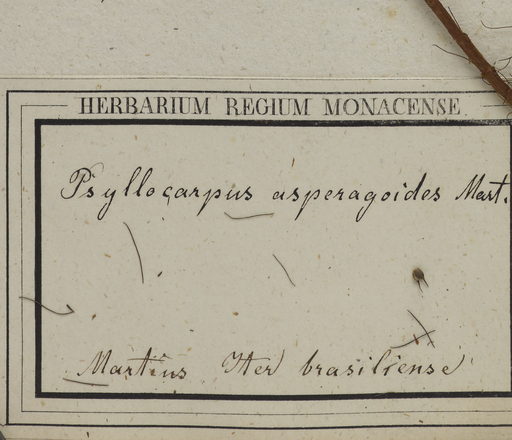 HERBARIUM REGIUM MONACENSE
Psyllocarpus asperagoides Mart.
Martius Iter brasiliense